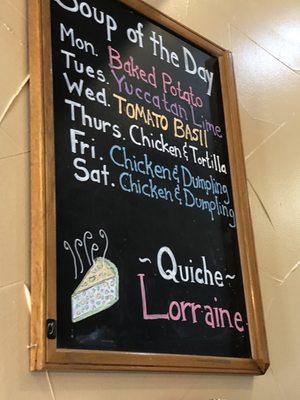 Soup of the Day
Mon. Baked Potato
Tues. Yuccatan Lime
Wed. TOMATO BASIL
Thurs. Chicken & Tortilla
Fri. Chicken & Dumpling
Sat. Chicken & Dumpling
~ Quiche ~
Lorraine